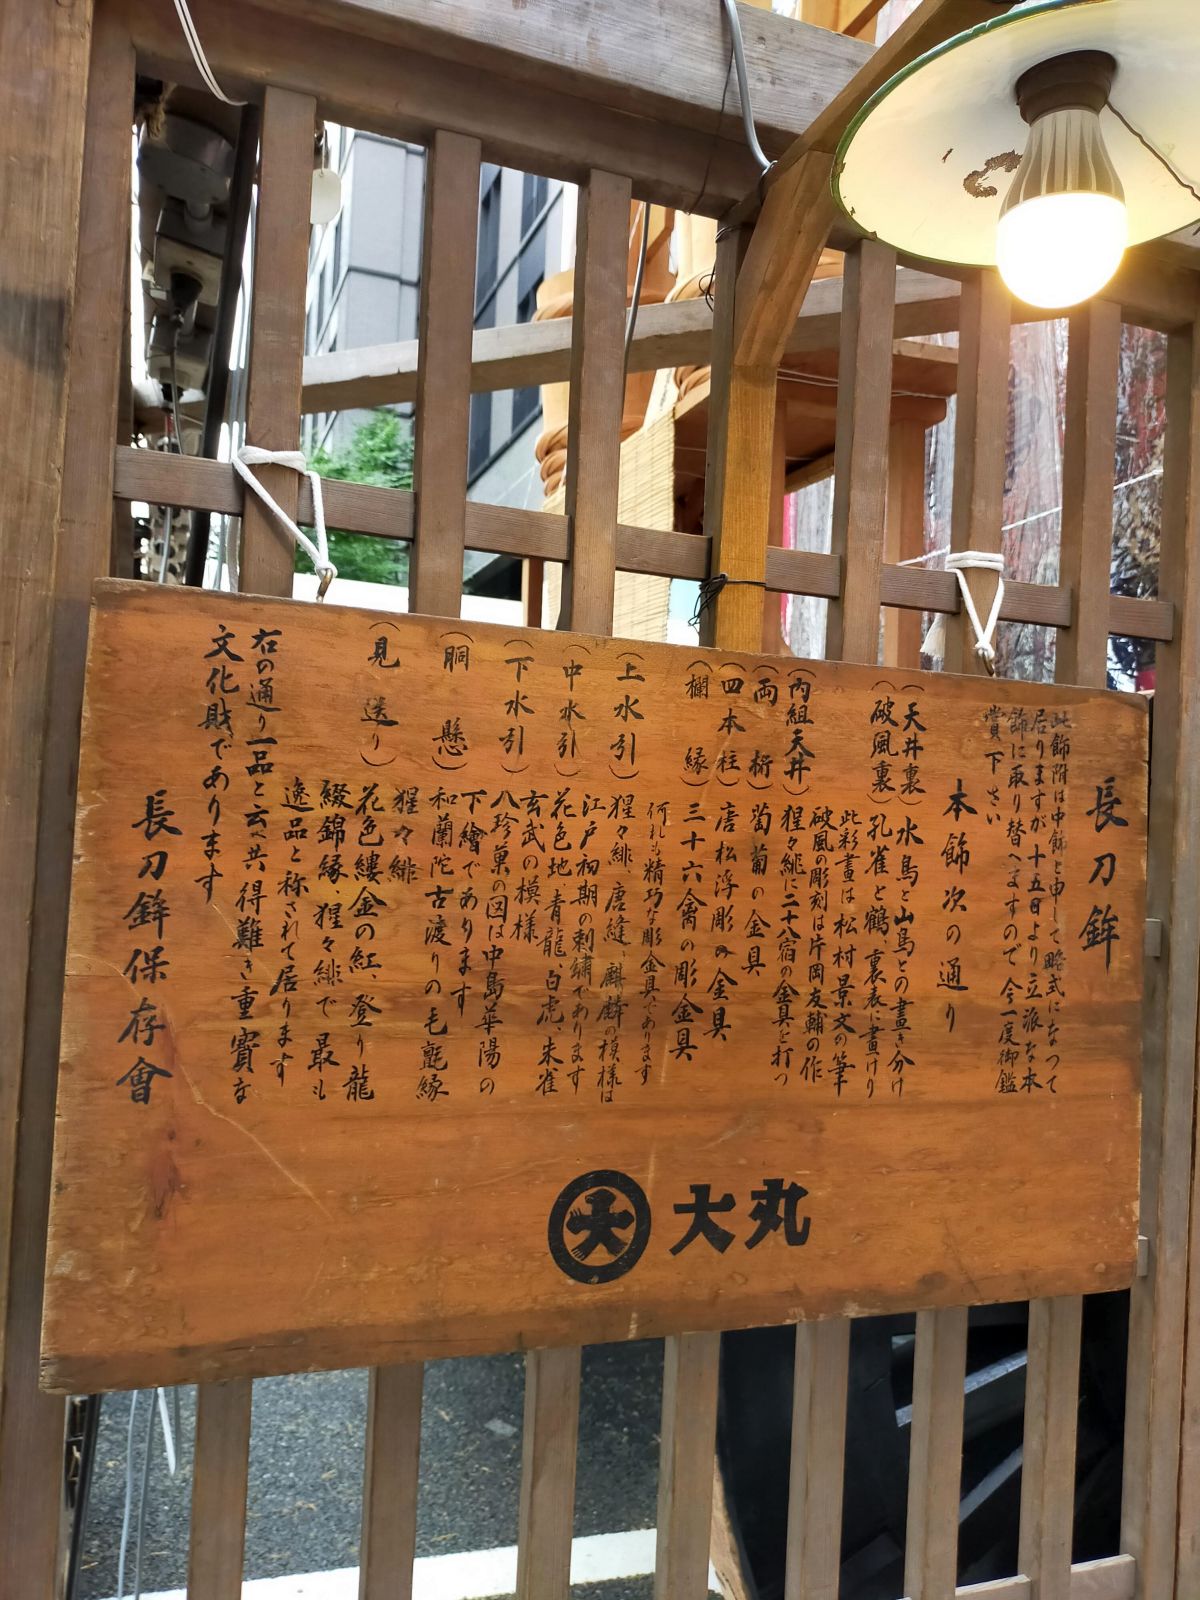 長刀鉾
此飾附は中飾と申して略式になつて
居りますが十五日より立派な本
飾に取り替へますので今一度御鑑
賞下さい
本飾次の通り
(天井裏)水鳥と山鳥との畫き分け
(破風裏)孔雀と鶴、裏表に畫けり
此彩畫は松村景文の筆
破風の彫刻は片岡友輔の作
(内組天井)猩々緋に二十八宿の金具を打つ
(両桁)葡萄の金具
(四本柱)唐松浮彫の金具
(欄縁)三十六禽の彫金具
何れも精巧な彫金具であります
(上水引)猩々緋、唐縫、麒麟の模様は
江戸初期の刺繍であります
(中水引)花色地、青龍、白虎、朱雀
玄武の模様
(下水引)八珍菓の図は中島華陽の
下繪であります
(胴懸)和蘭陀古渡りの毛氈縁
猩々緋
(見送り)花色縷金の紅、登り龍
綴錦縁、猩々緋で最も
逸品と称されて居ります
右の通り一品と云へ共得難き重寳な
文化財であります
長刀鉾保存會
大 大丸